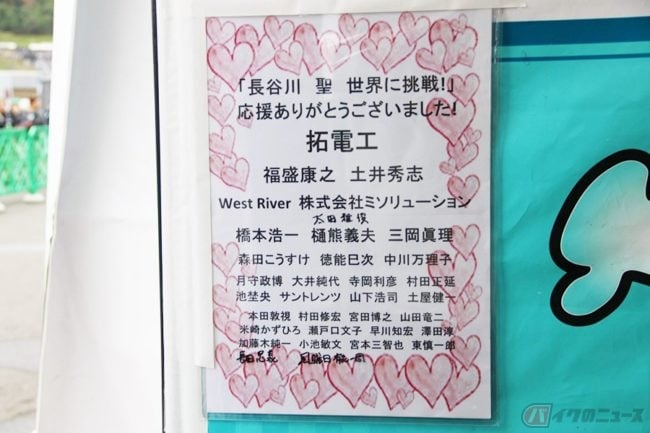 「長谷川 聖 世界に挑戦!」
応援ありがとうございました!
拓電工
福盛康之 土井秀志
West River 株式会社ミソリューション
太田雄俊
橋本浩一 樋熊義夫 三岡眞理
森田こうすけ 徳能巳次 中川万理子
月守政博 大井純代 寺岡利彦 村田正延
池埜央 サントレンツ 山下浩司 土屋健一
本田敦視 村田修宏 宮田博之 山田竜二
米崎かずひろ 瀬戸口文子 早川知宏 澤田淳
加藤木純一 小池敏文 宮本三智也 東慎一郎
バイクのニュース